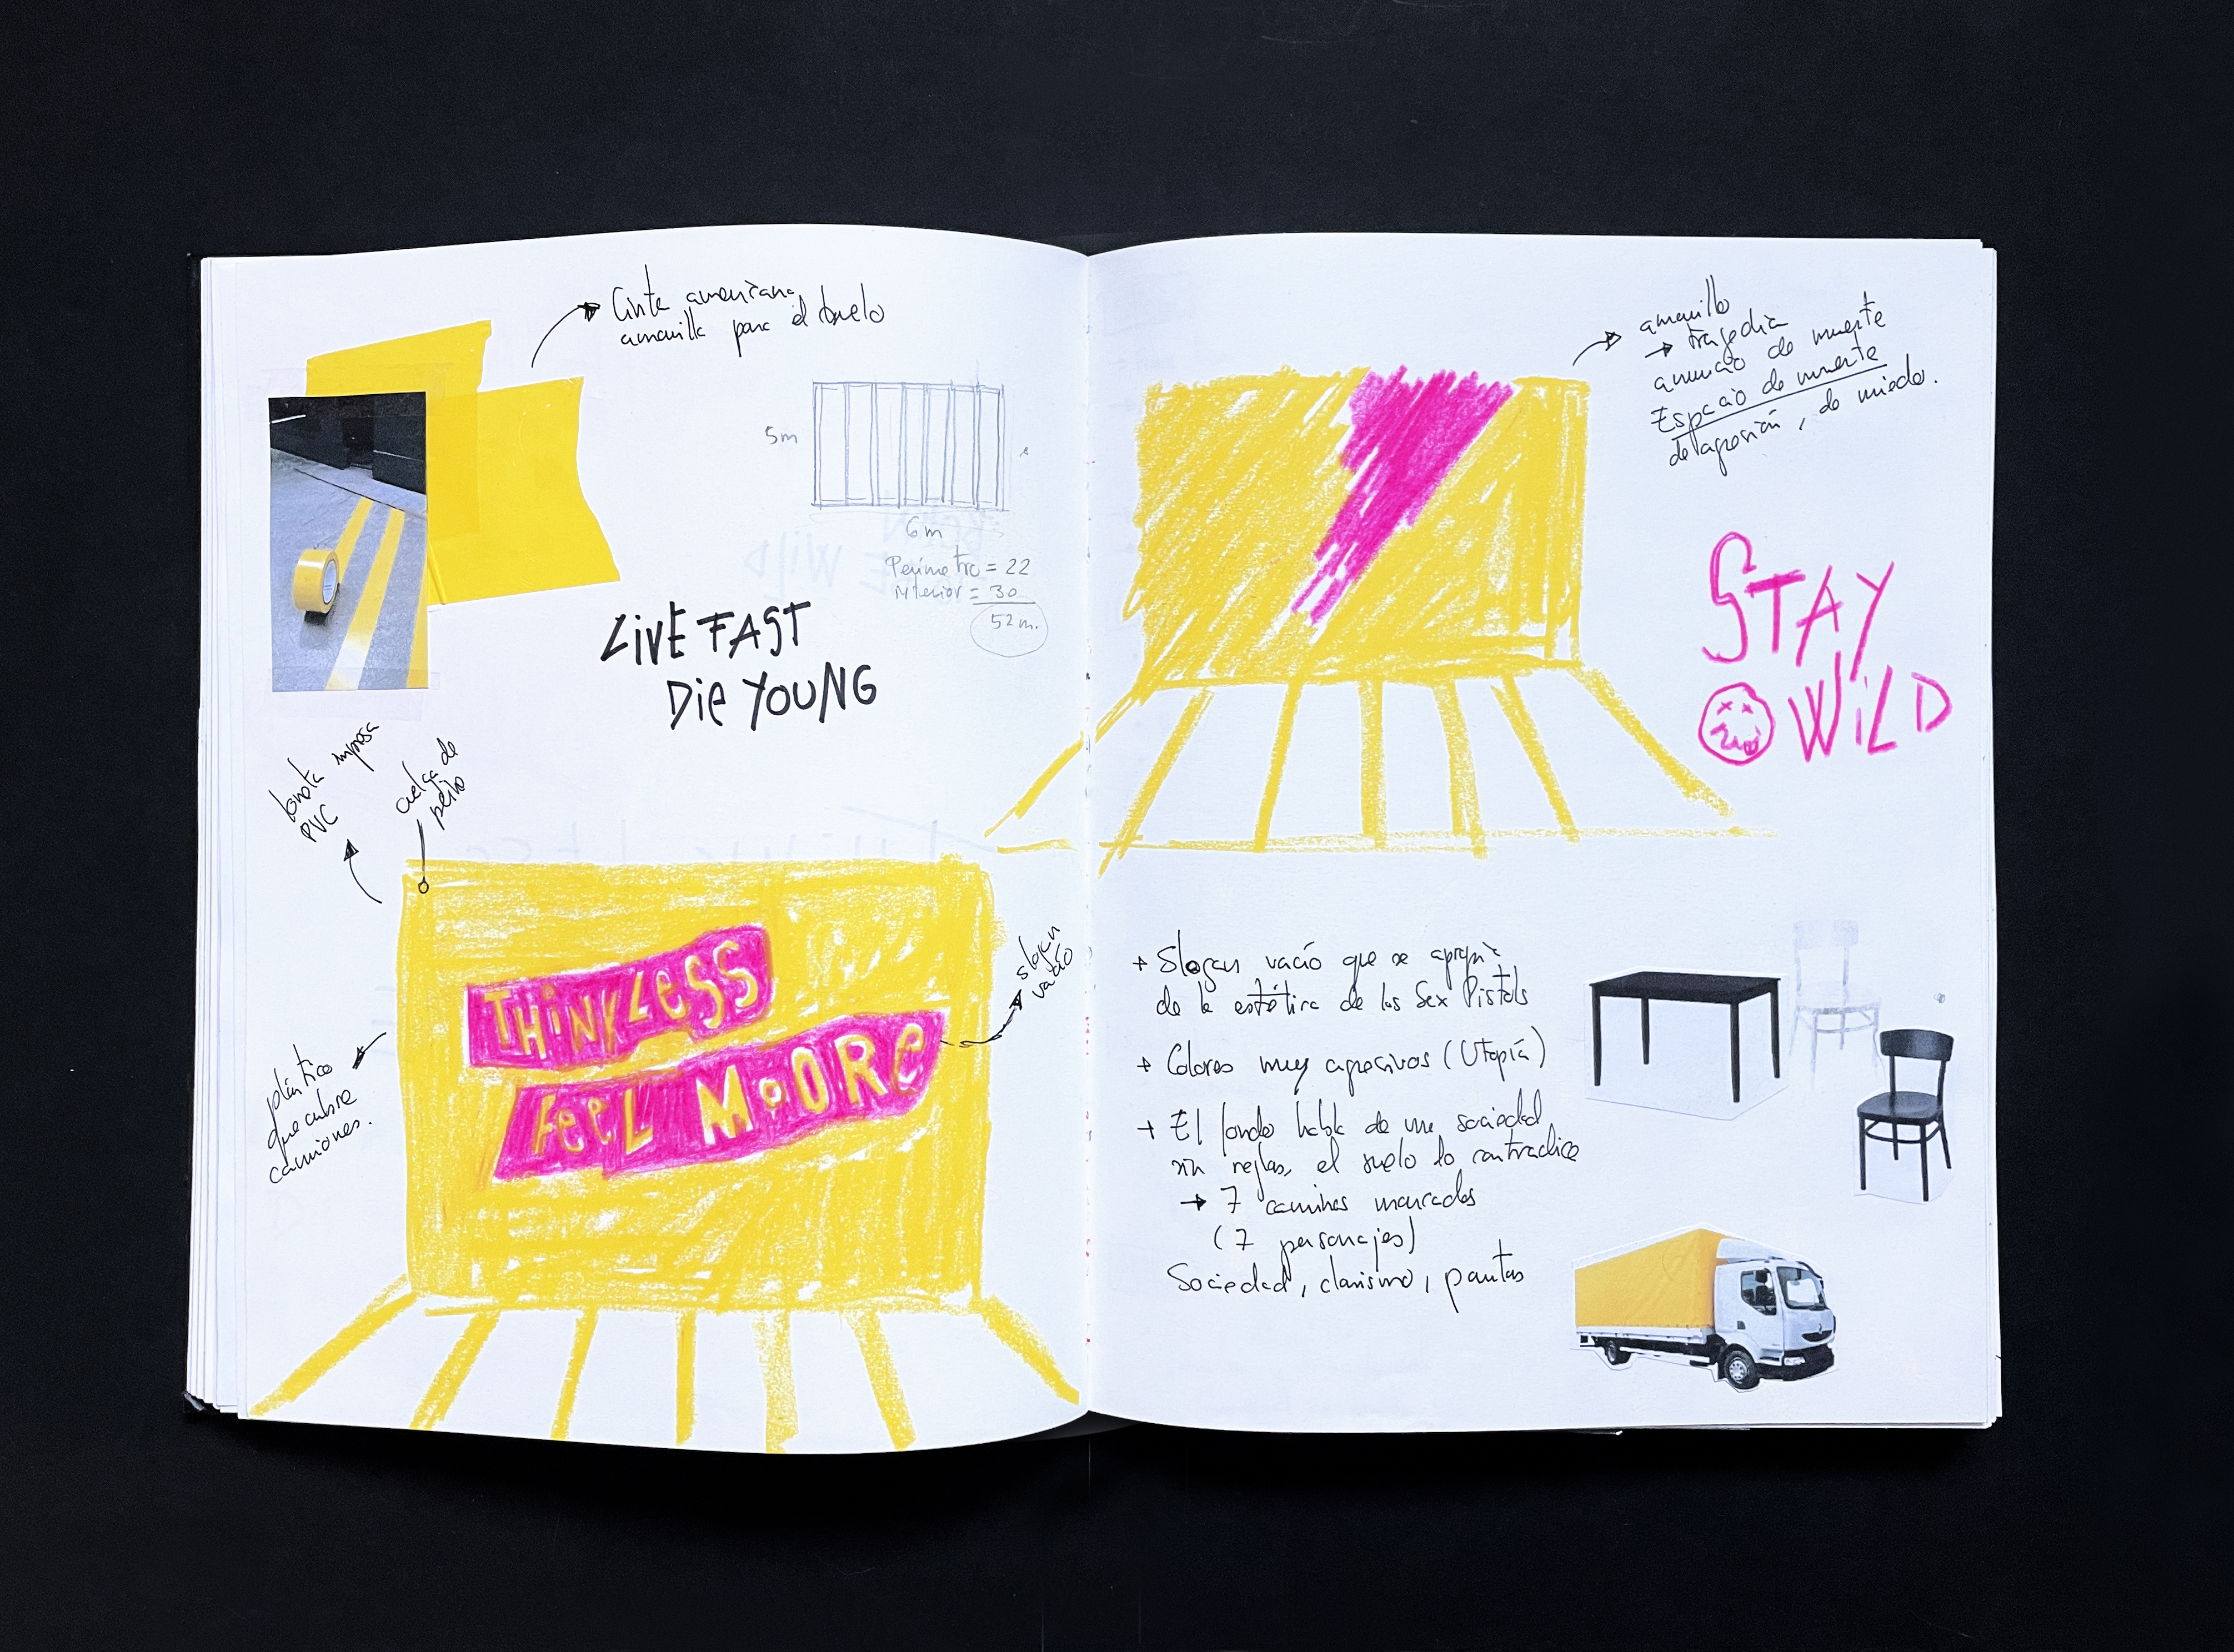 Cinta americana
amarilla para el suelo
5m
6m
Perímetro = 22
interior = 30
52 m.
LiVE FAST
Die YOUNG
lonata impresa
PVC
cuelga de
peine
THiNK LeSS
FeeL MoORe
slogan
vacío
plástico
que cubre
camiones.
amarillo
→ tragedia
anuncio de muerte
Espacio de muerte
de agresión, de miedo.
STAY
WiLD
+ Slogan vacío que se apropia
de la estética de los Sex Pistols
+ Colores muy agresivos (Utopía)
+ El fondo habla de una sociedad
sin reglas, el suelo lo contradice
→ 7 caminos marcados
(7 personajes)
Sociedad, clasismo, pautas